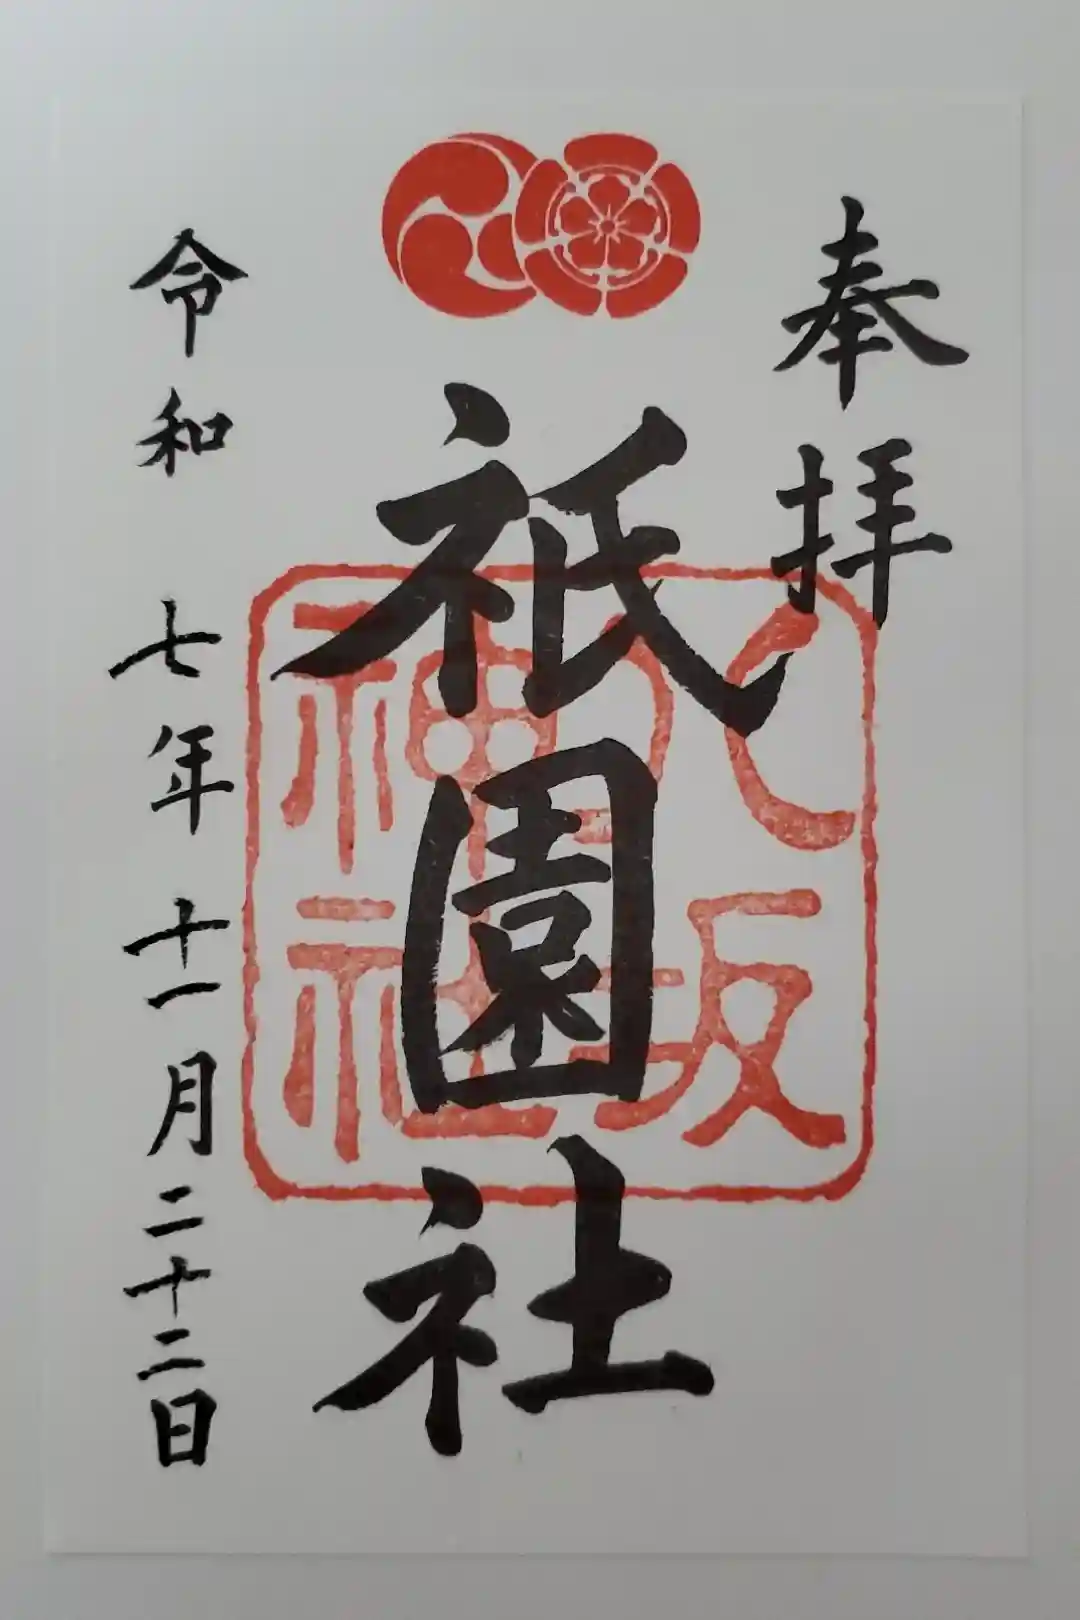 奉拝
祇園社
八坂
神社
令和七年十一月二十二日